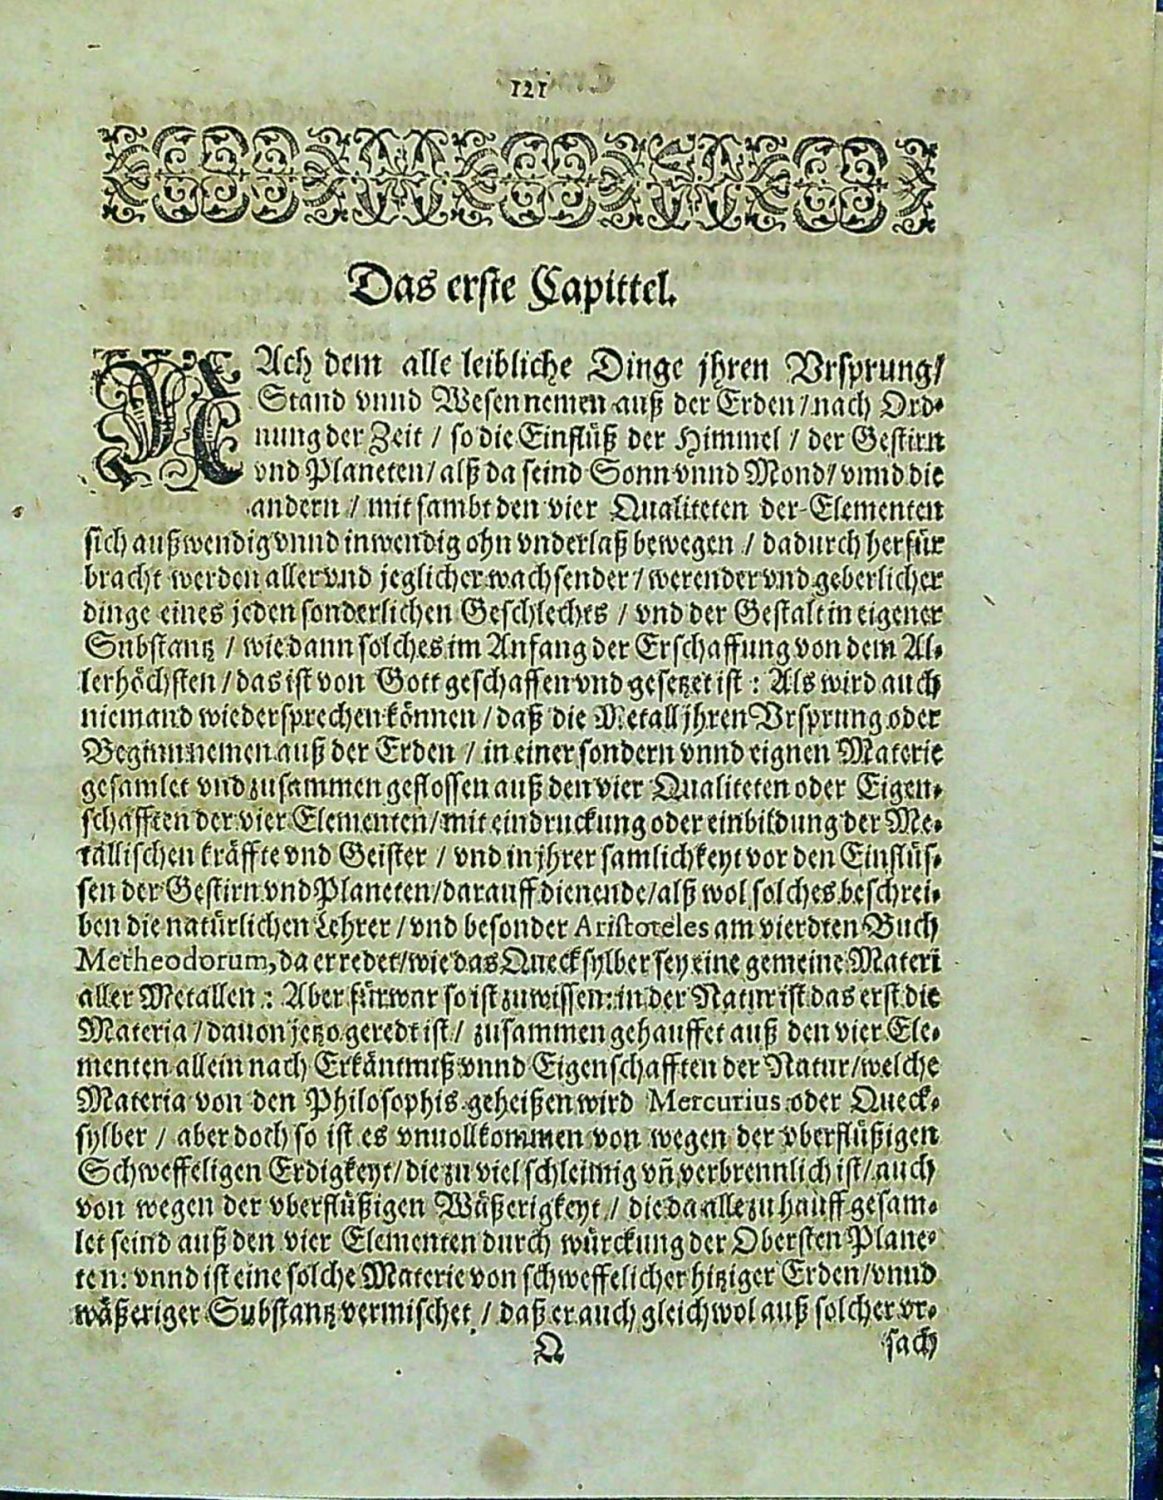 121
Das erste Capittel.
NAch dem alle leibliche Dinge jhren Vrsprung/
Stand vnnd Wesen nemen auß der Erden / nach Ord-
nung der Zeit / so die Einflüß der Himmel / der Gestirn
vnd Planeten / alß da seind Sonn vnnd Mond / vnnd die
andern / mit sambt den vier Qualiteten der Elementen
sich außwendig vnnd inwendig ohn vnderlaß bewegen / dadurch herfür
bracht werden aller vnd jeglicher wachsender / werender vnd geberlicher
dinge eines jeden sonderlichen Geschleches / vnd der Gestalt in eigener
Substantz / wie dann solches im Anfang der Erschaffung von dem Al-
lerhöchsten / das ist von Gott geschaffen vnd gesetzet ist : Als wird auch
niemand wiedersprechen können / daß die Metall jhren Vrsprung oder
Beginn nemen auß der Erden / in einer sondern vnnd eignen Materie
gesamlet vnd zusammen geflossen auß den vier Qualiteten oder Eigen-
schafften der vier Elementen / mit eindruckung oder einbildung der Me-
tallischen kräffte vnd Geister / vnd in jhrer samlichkeyt vor den Einflüs-
sen der Gestirn vnd Planeten / darauff dienende / alß wol solches beschrei-
ben die natürlichen Lehrer / vnd besonder Aristoteles am vierdten Buch
Metheodorum, da er redet / wie das Quecksylber sey eine gemeine Materi
aller Metallen : Aber fürwar so ist zu wissen: in der Natur ist das erst die
Materia / dauon jetzo geredt ist / zusammen gehauffet auß den vier Ele-
menten allein nach Erkäntniß vnnd Eigenschafften der Natur / welche
Materia von den Philosophis geheißen wird Mercurius oder Queck-
sylber / aber doch so ist es vnuollkommen von wegen der vberflüßigen
Schweffeligen Erdigkeyt / die zu viel schleimig vñ verbrennlich ist / auch
von wegen der vberflüßigen Wäßerigkeyt / die da alle zu hauff gesam-
let seind auß den vier Elementen durch würckung der Obersten Plane-
ten: vnnd ist eine solche Materie von schweffelicher hitziger Erden / vnnd
wäßeriger Substantz vermischet / daß er auch gleichwol auß solcher vr-
Q
sach